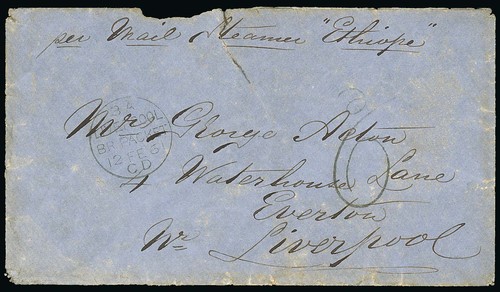 per Mail Steamer "Ethiope"
Mr. George Acton
4 Waterhouse Lane
Everton
Nr Liverpool
LIVERPOOL
BR. PACKET
12 FE 6
CD